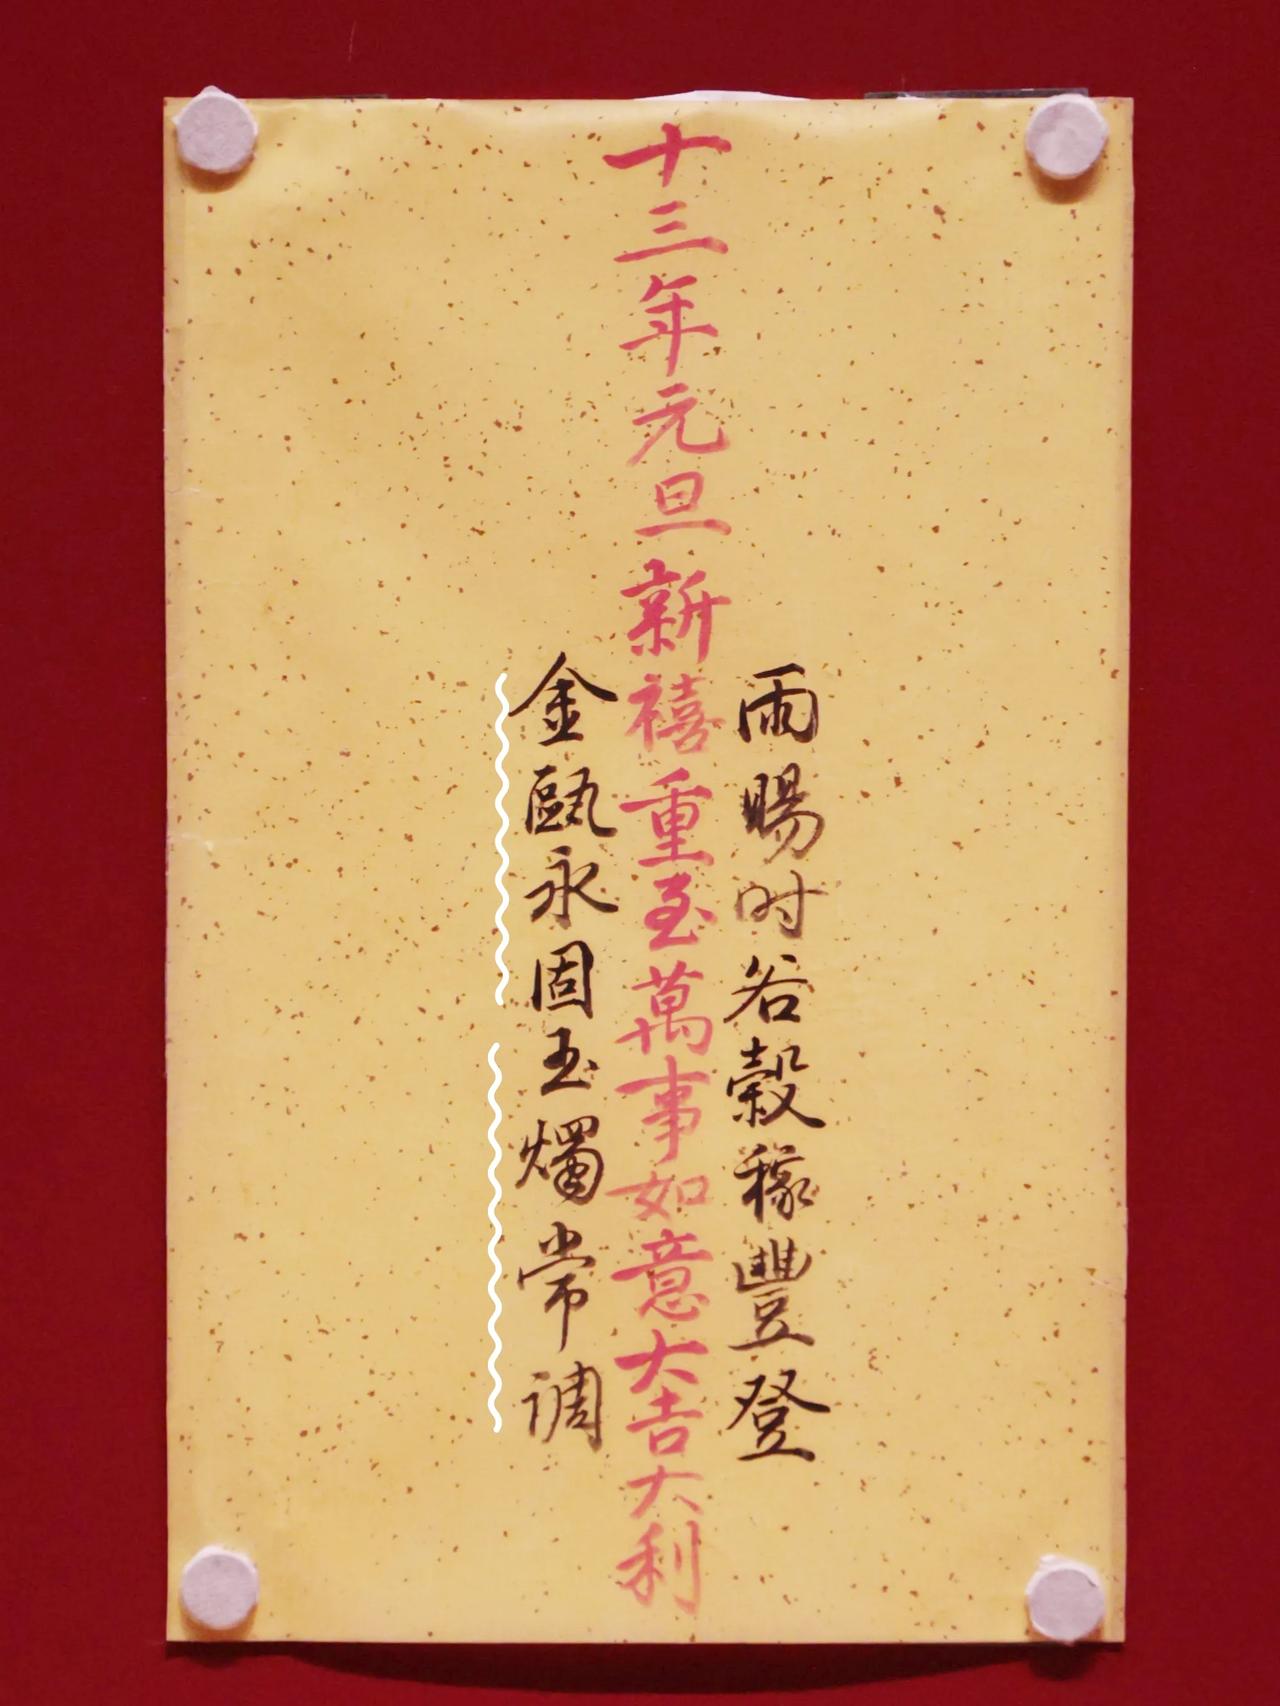 雨暘时若穀稼豐登
十三年元旦新禧重至萬事如意大吉大利
金甌永固玉燭常调